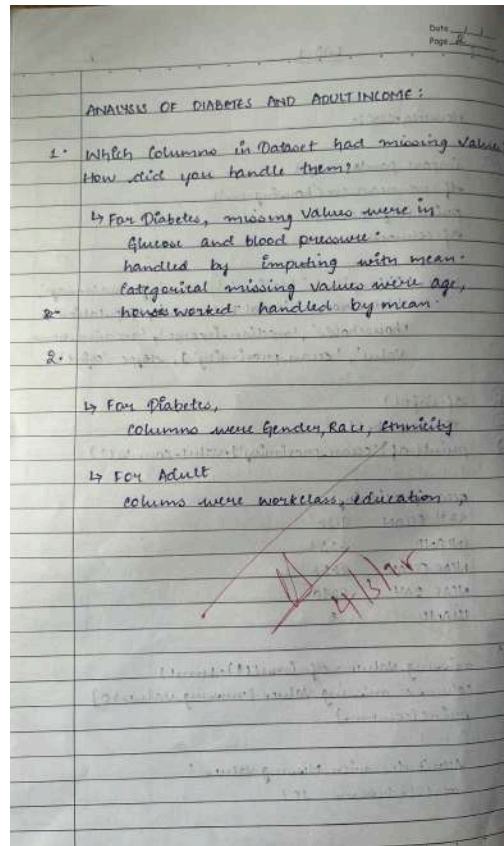 Date / /
Page 2
ANALYSIS OF DIABETES AND ADULT INCOME:
1. Which Columns in Dataset had missing value
How did you handle them?
↳ For Diabetes, missing values were in
Glucose and blood pressure.
handled by imputing with mean.
Categorical missing values were age,
hours worked handled by mean.
2.
↳ For Diabetes,
columns were Gender, Race, Ethnicity
↳ For Adult
colums were workclass, education,